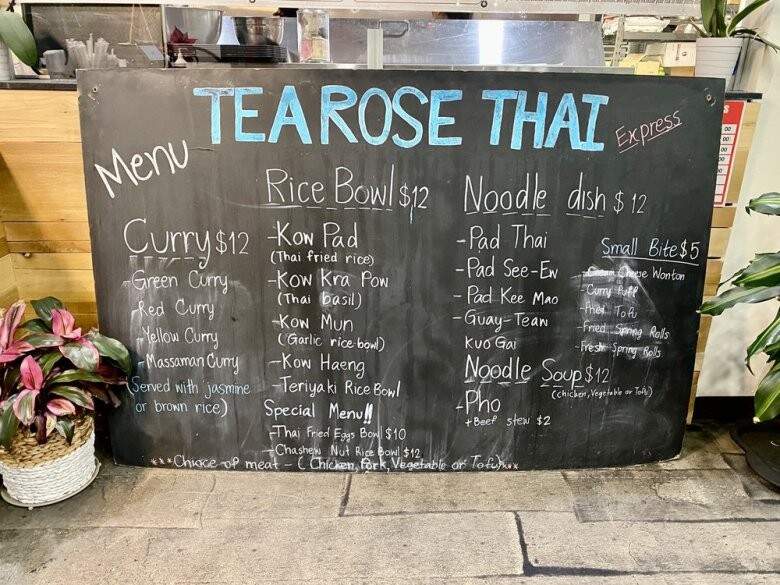 TEAROSE THAI
Express
Menu
Curry $12
-Green Curry
-Red Curry
-Yellow Curry
-Massaman Curry
(Served with jasmine
or brown rice)
Rice Bowl $12
-Kow Pad
(Thai fried rice)
-Kow Kra Pow
(Thai basil)
-Kow Mun
(Garlic rice bowl)
-Kow Haeng
-Teriyaki Rice Bowl
Special Menu!!
-Thai Fried Eggs Bowl $10
-Chashew Nut Rice Bowl $12
Noodle dish $12
-Pad Thai
-Pad See-Ew
-Pad Kee Mao
-Guay-Teaw
Kuo Gai
Noodle Soup $12
(chicken, Vegetable or Tofu)
-Pho
+Beef stew $2
Small Bite $5
-Cream Cheese Wonton
-Curry Puff
-Fried Tofu
-Fried Spring Rolls
-Fresh Spring Rolls
***Choice of meat - (Chicken, Pork, Vegetable or Tofu)***